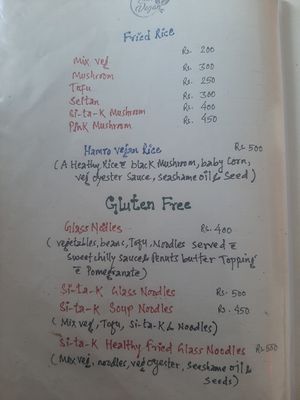 Vegan
Fried Rice
Mix veg Rs. 200
Mushroom Rs. 300
Tofu Rs. 250
Seitan Rs. 300
Si-ta-k Mushroom Rs. 400
Pink Mushroom Rs. 450
Hamro vegan Rice Rs. 500
( A Heathy Rice & black Mushroom, baby Corn,
veg oyester Sauce, seashame oil & Seed )
Gluten Free
Glass Nodles Rs. 400
( vegetables, beans, Tofu, Noodles served &
sweet chilly sauce & Penuts butter Topping
& Pomegranate)
Si-ta-K Glass Noodles Rs. 500
Si-ta-K Soup Noodles Rs. 450
( Mix veg, Tofu, Si-ta-K & Noodles)
Si-ta-K Healthy Fried Glass Noodles Rs. 550
( Mix veg, noodles, veg oyester, seashame oil &
seeds)